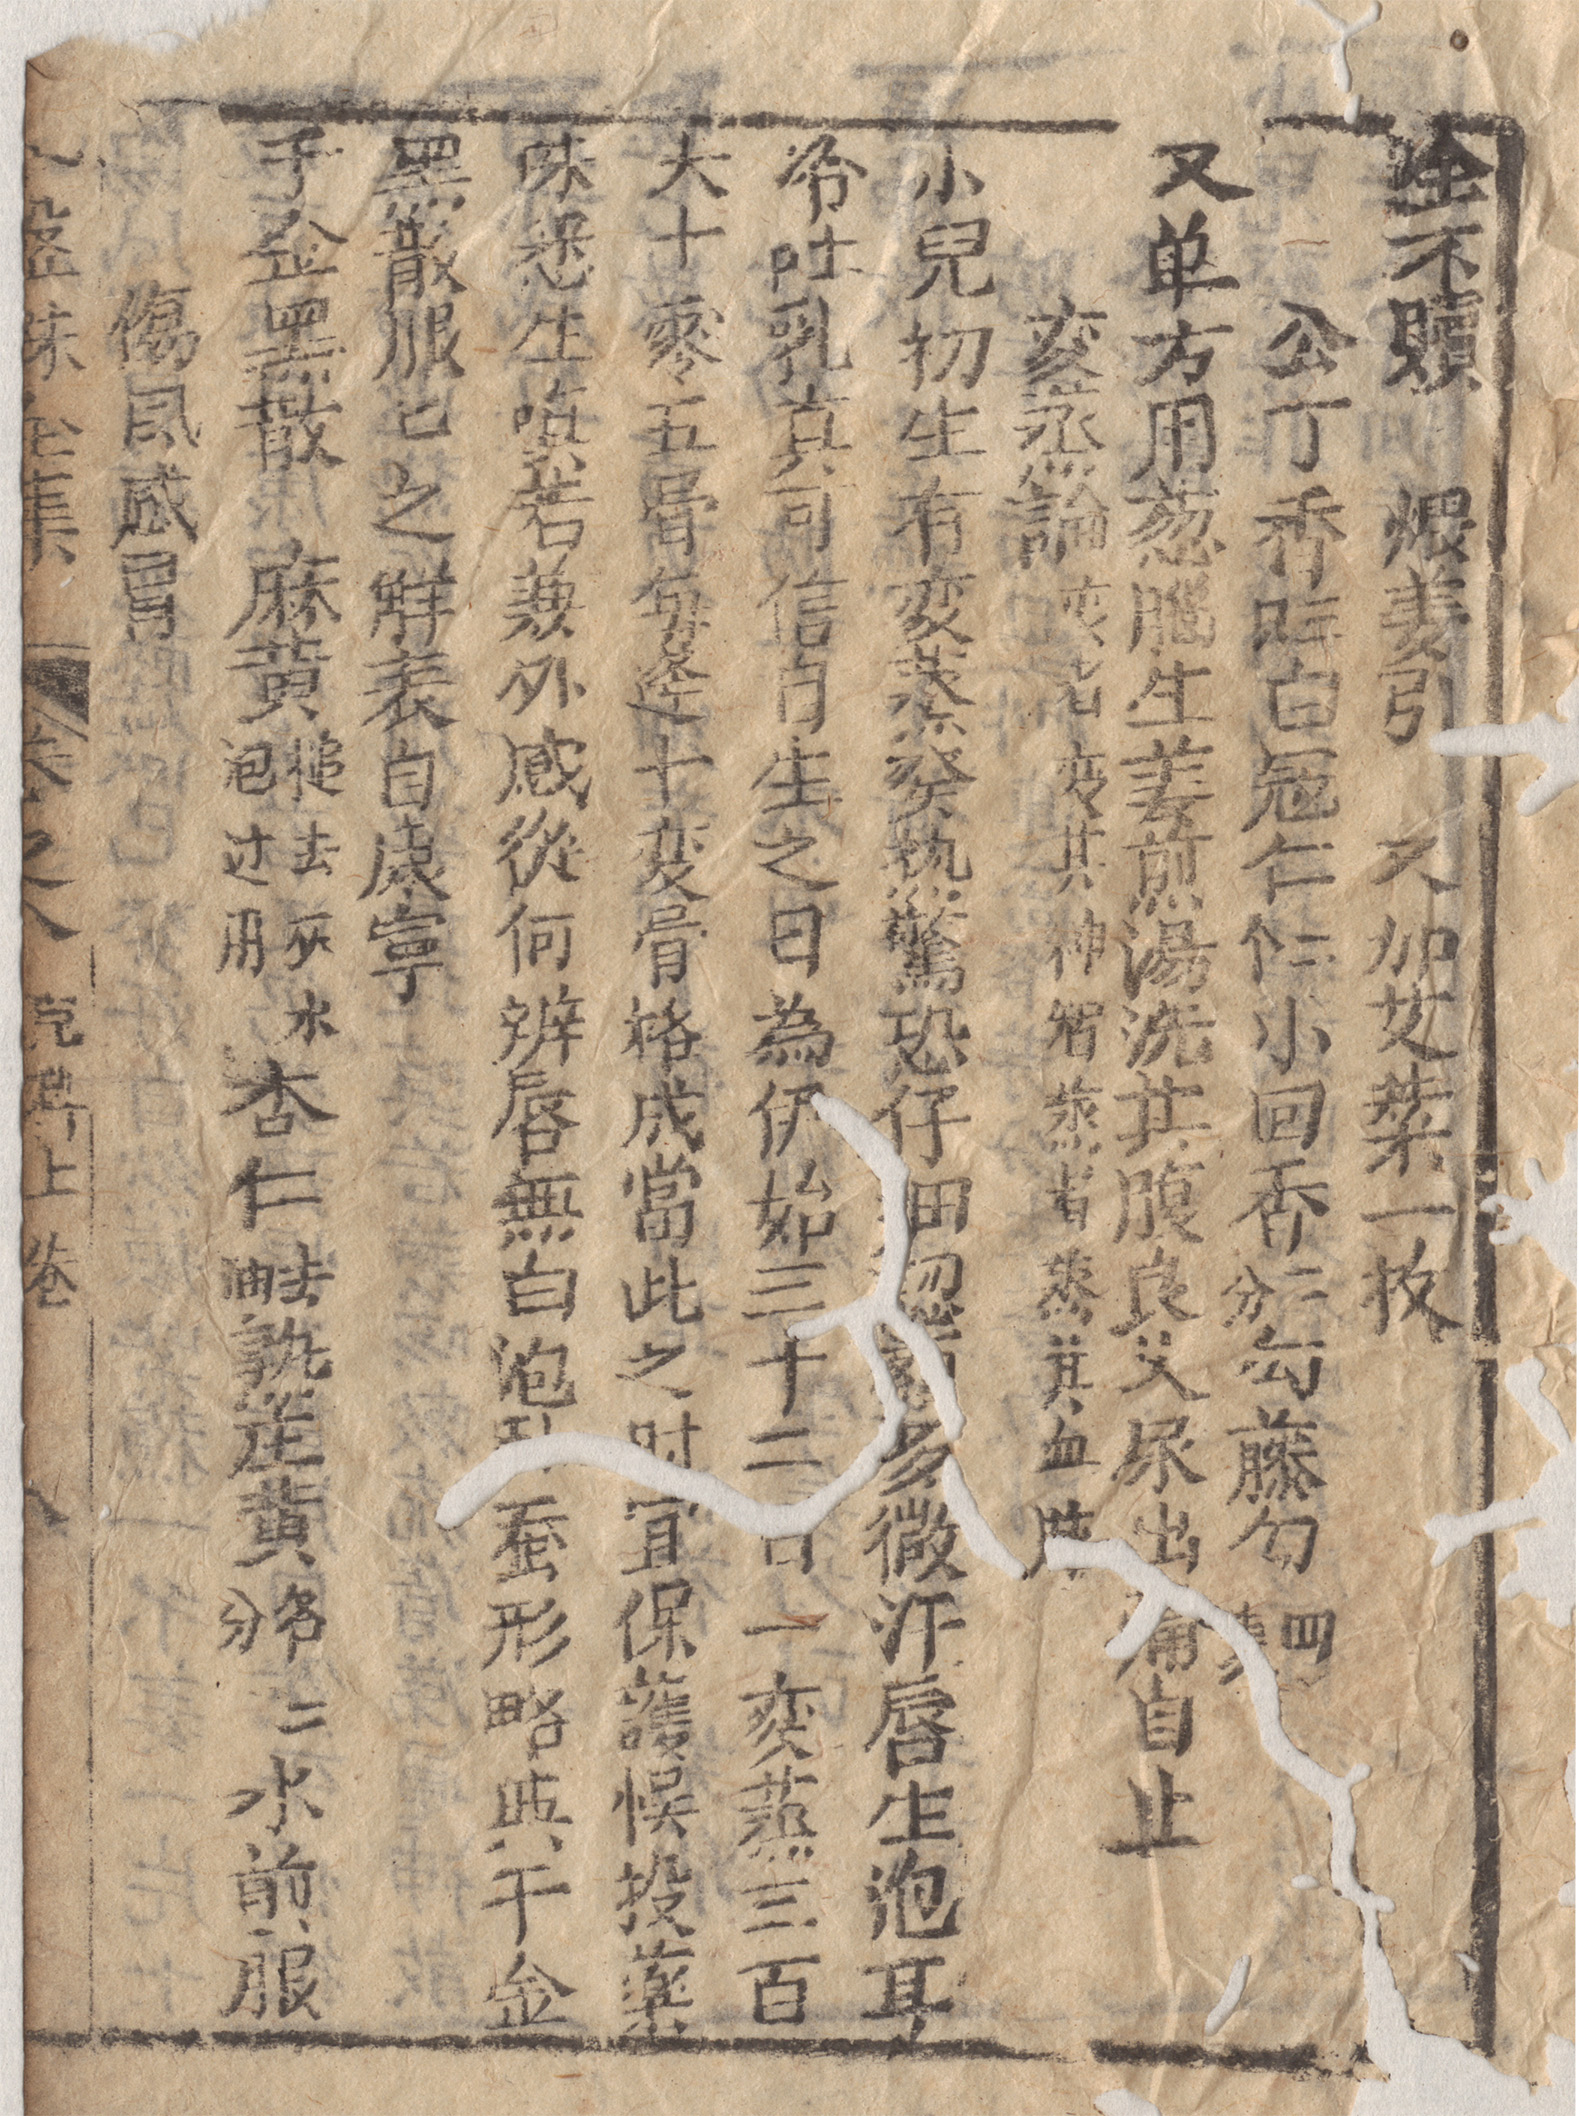 全不贖　煨姜引　又加艾葉一枚
公丁香 白冠仁 小回香二分 勾藤勾四
又单方用葱腦生姜煎湯洗其腹良久尿出痛自止
变蒸論 变者变其神智蒸者蒸其血脉
小兒初生有变蒸發熱驚恐仔细認多微汗唇生泡耳
冷吐乳真可信自生之日為伊始三十二日一变蒸三百
大十零五骨每逢十变骨格成當此之时宜保護悞投藥
味恐生嗔若兼外感從何辨唇無白泡卧蚕形略與千金
黑散服七之解表自康寧
千金黑散 麻黄槌去灰水泡过用 杏仁去油 熟荘黄各分 二水前服
傷風感冒
全集 卷之人 児科上卷 八